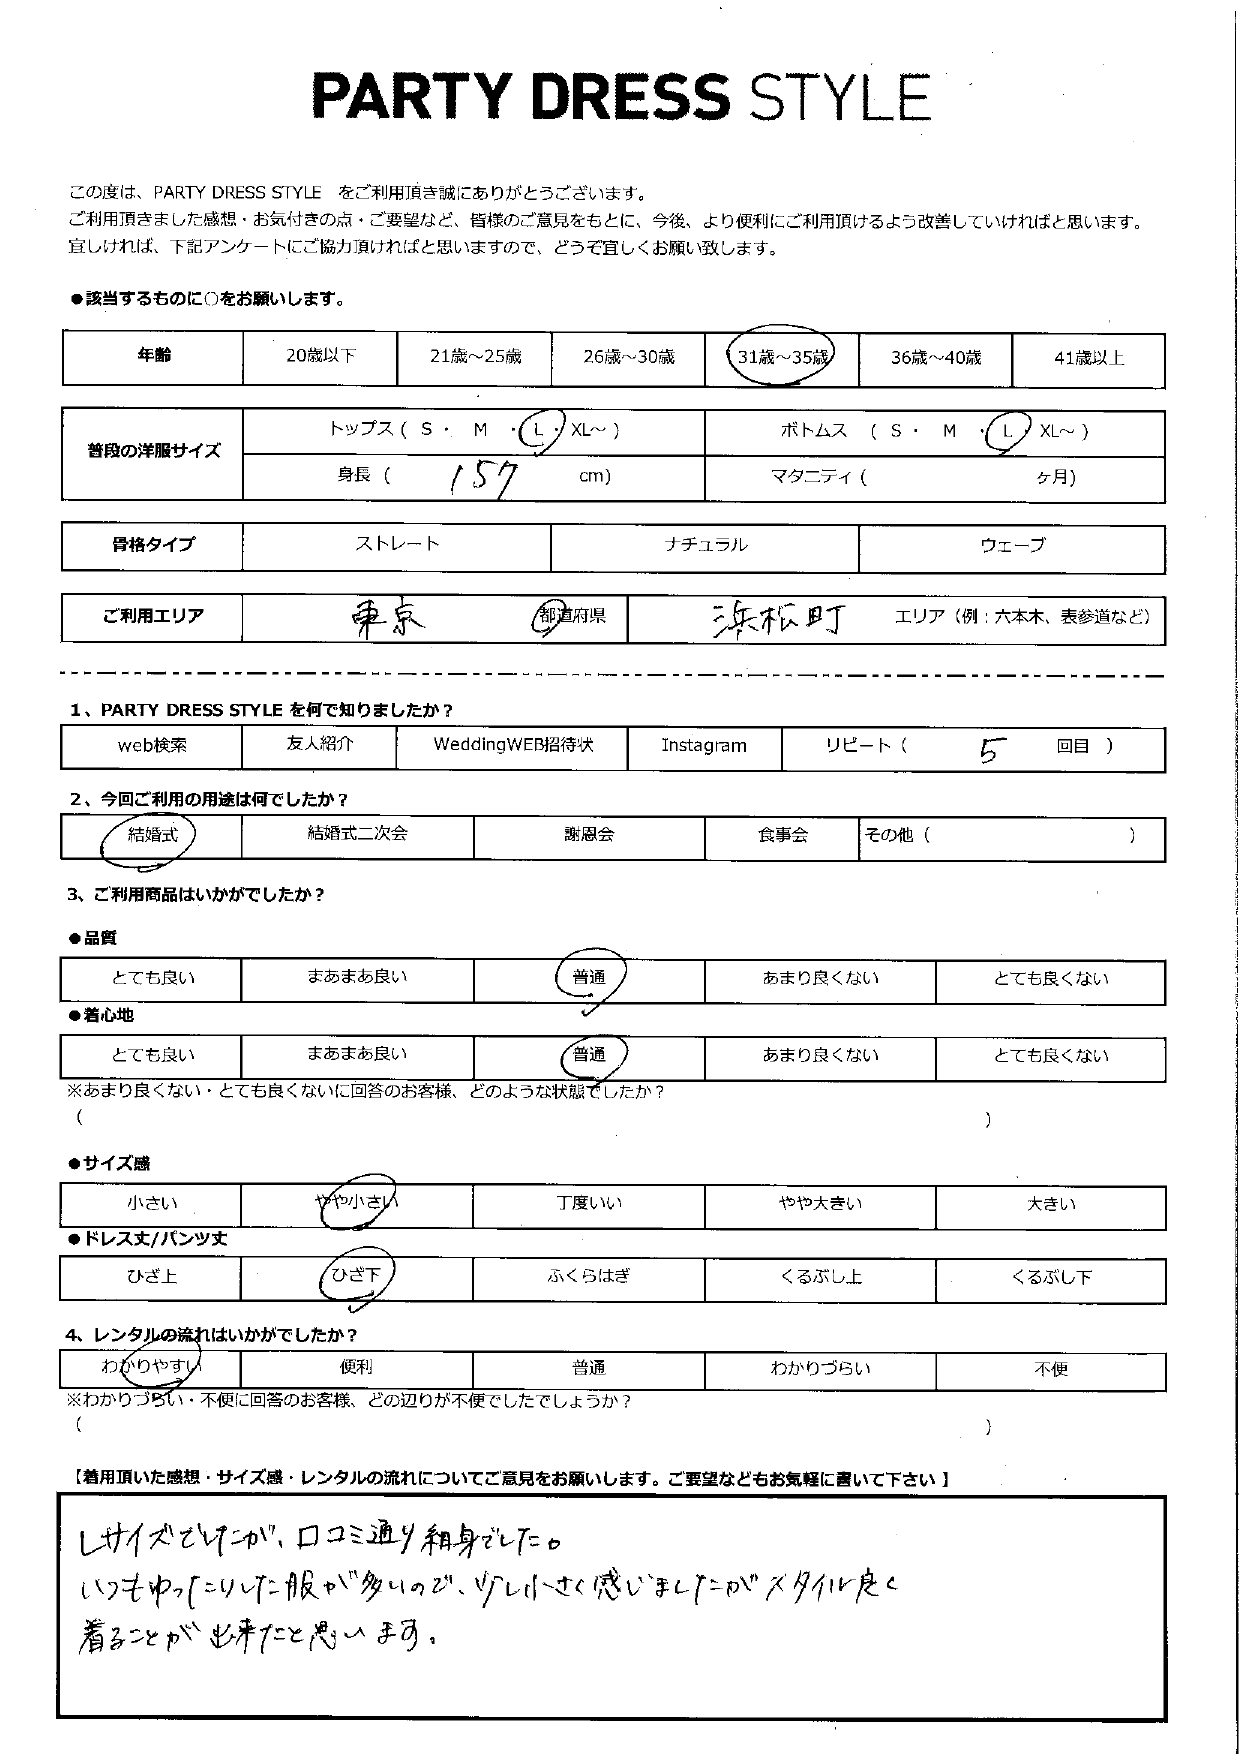 PARTY DRESS STYLE
この度は、PARTY DRESS STYLE をご利用頂き誠にありがとうございます。
ご利用頂きました感想・お気付きの点・ご要望など、皆様のご意見をもとに、今後、より便利にご利用頂けるよう改善していければと思います。
宜しければ、下記アンケートにご協力頂ければと思いますので、どうぞ宜しくお願い致します。
●該当するものに○をお願いします。
年齢 20歳以下 21歳～25歳 26歳～30歳 31歳～35歳 36歳～40歳 41歳以上
普段の洋服サイズ トップス ( S ・ M ・ L ・ XL～ ) ボトムス ( S ・ M ・ L ・ XL～ )
身長 ( 157 cm) マタニティ ( ヶ月)
骨格タイプ ストレート ナチュラル ウェーブ
ご利用エリア 東京 都道府県 浜松町 エリア（例：六本木、表参道など）
1、PARTY DRESS STYLE を何で知りましたか？
web検索 友人紹介 WeddingWEB招待状 Instagram リピート ( 5 回目 )
2、今回ご利用の用途は何でしたか？
結婚式 結婚式二次会 謝恩会 食事会 その他 ( )
3、ご利用商品はいかがでしたか？
●品質
とても良い まあまあ良い 普通 あまり良くない とても良くない
●着心地
とても良い まあまあ良い 普通 あまり良くない とても良くない
※あまり良くない・とても良くないに回答のお客様、どのような状態でしたか？
( )
●サイズ感
小さい やや小さい 丁度いい やや大きい 大きい
●ドレス丈/パンツ丈
ひざ上 ひざ下 ふくらはぎ くるぶし上 くるぶし下
4、レンタルの流れはいかがでしたか？
わかりやすい 便利 普通 わかりづらい 不便
※わかりづらい・不便に回答のお客様、どの辺りが不便でしたでしょうか？
( )
【着用頂いた感想・サイズ感・レンタルの流れについてご意見をお願いします。ご要望などもお気軽に書いて下さい 】
Lサイズでしたが、口コミ通り細身でした。
いつもゆったりした服が多いので、少し小さく感じましたがスタイル良く
着ることが出来たと思います。